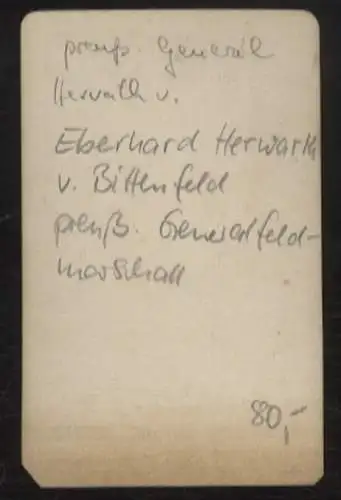 preuß. General
Herwath v.
Eberhard Herwarth
v. Bittenfeld
preuß. Generalfeld-
marschall
80,-